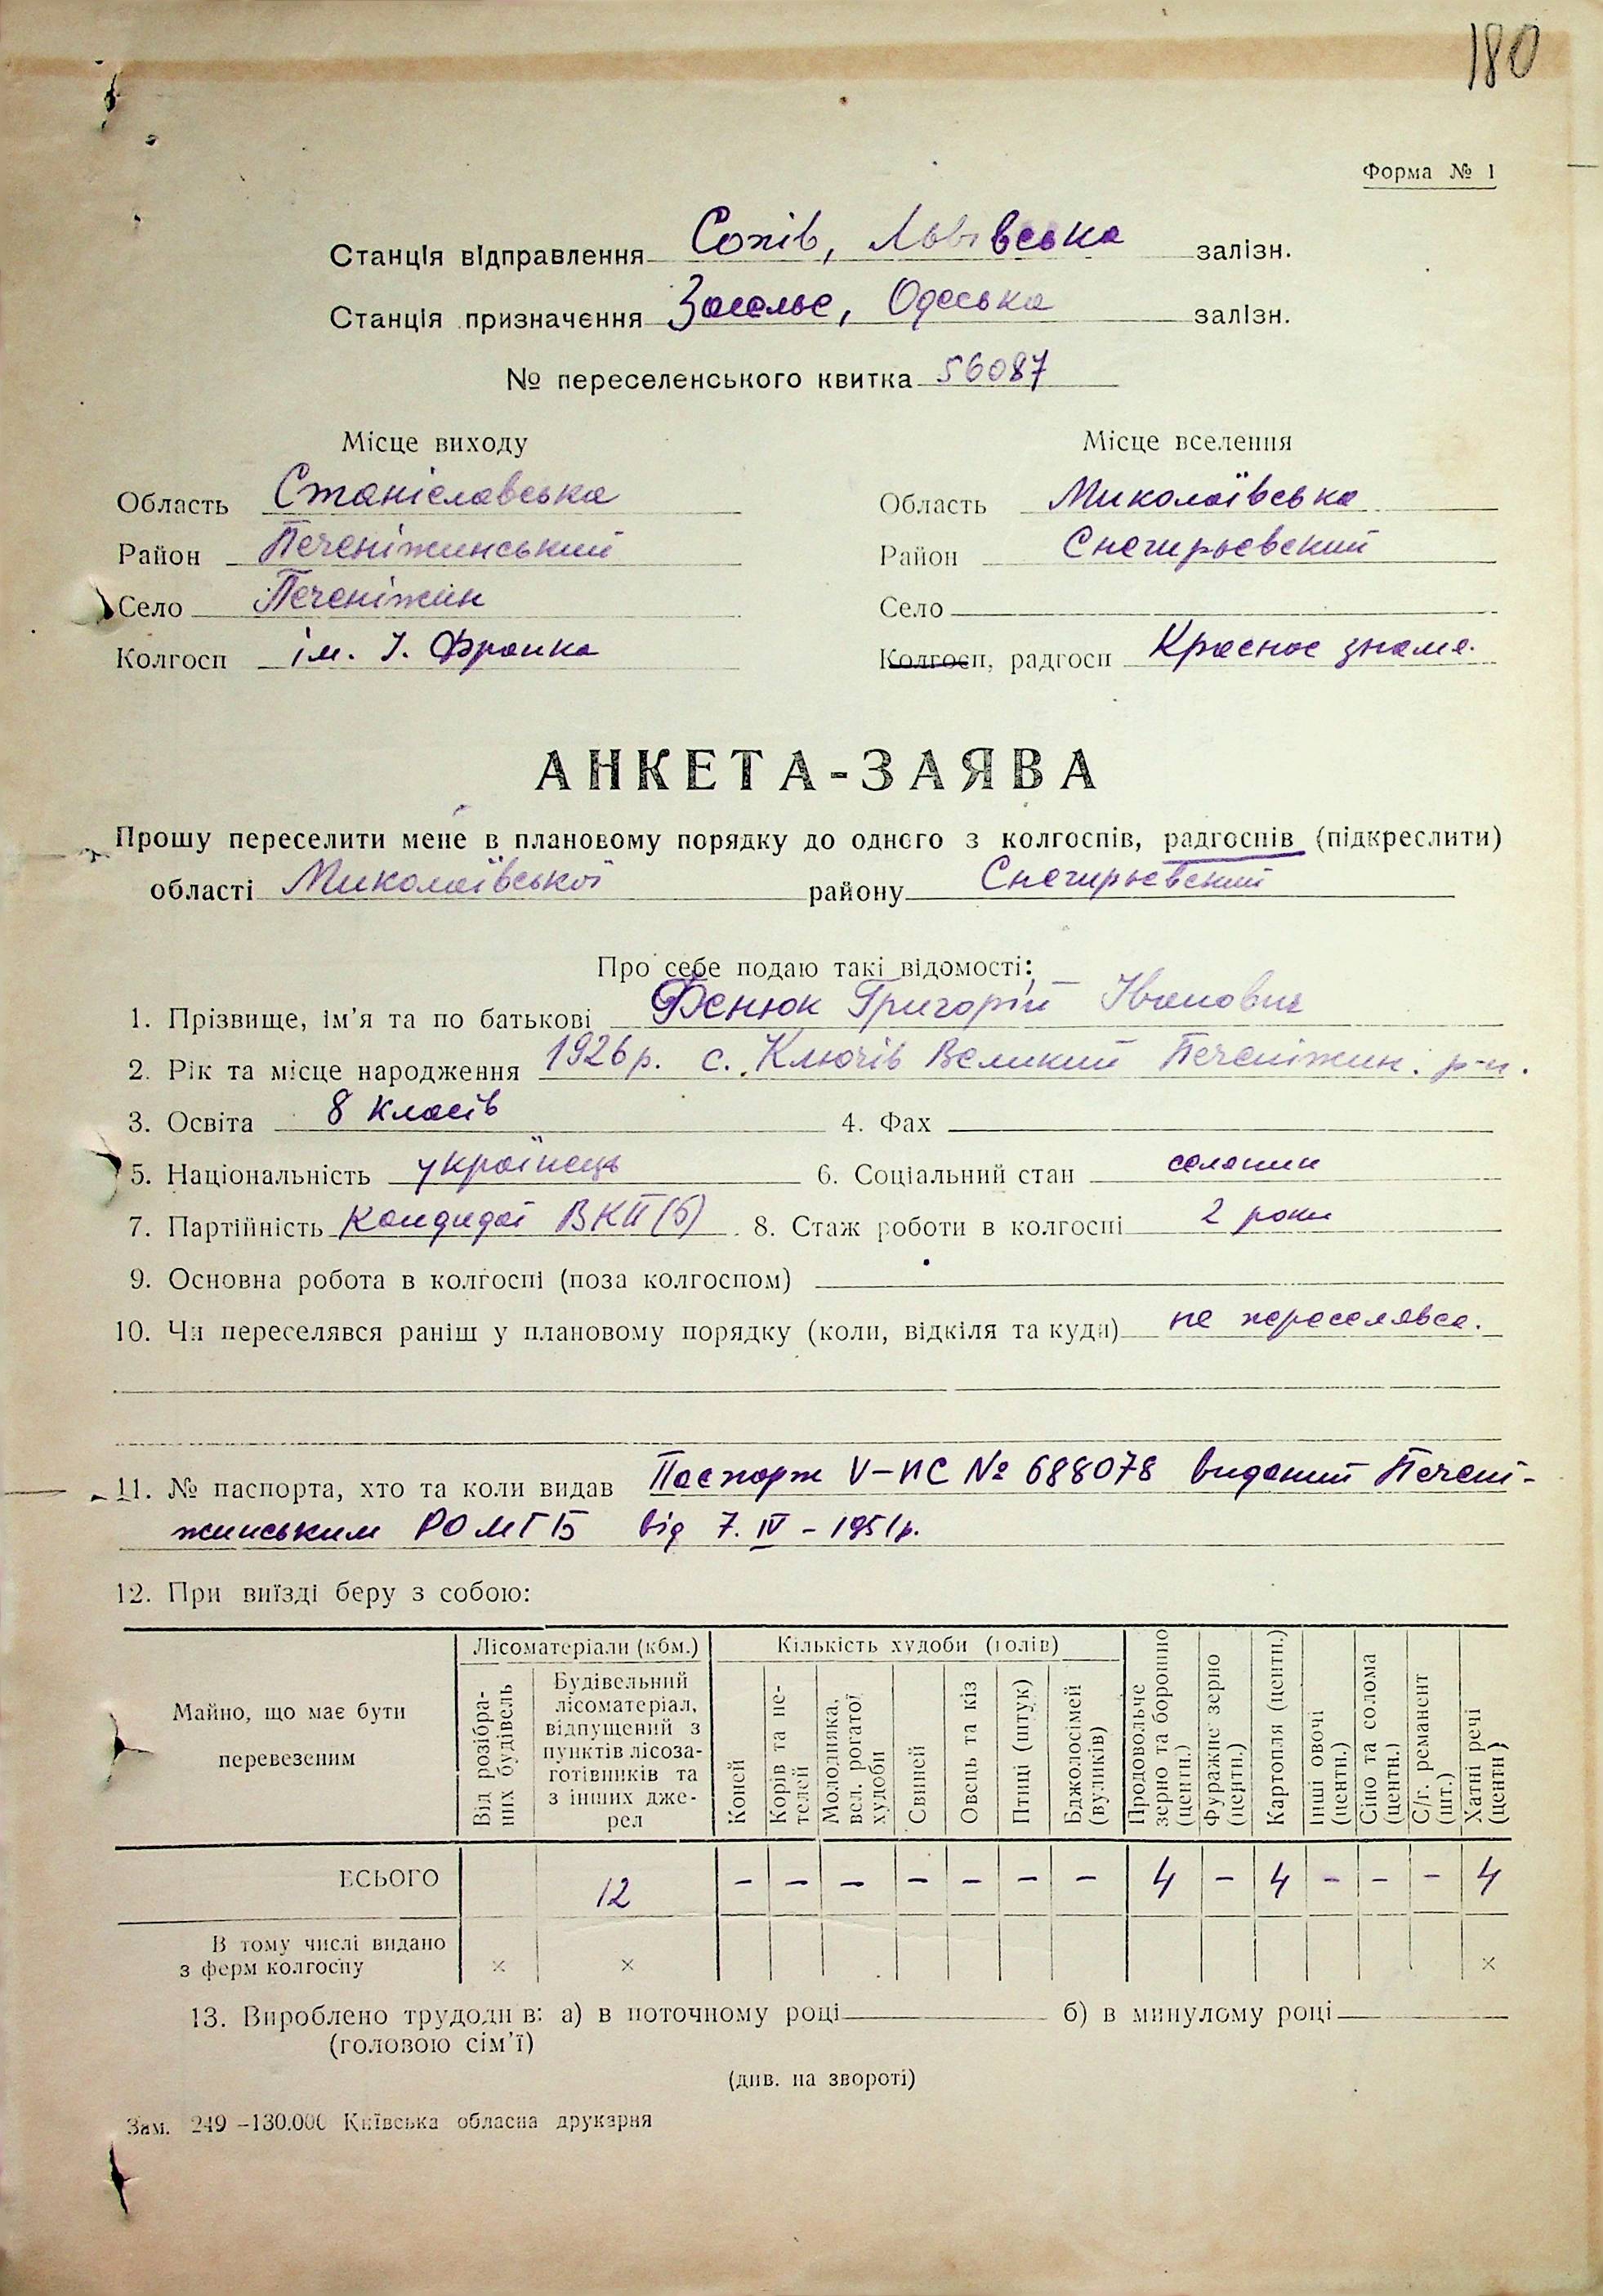 180
Форма № 1
Станція відправлення Сопів, Львівська залізн.
Станція призначення Засельє, Одеська залізн.
№ переселенського квитка 56087
Місце виходу Місце вселення
Область Станіславська Область Миколаївська
Район Печеніжинський Район Снегирьевский
Село Печеніжин Село
Колгосп ім. І. Франка Колгосп, радгосп Красное знамя.
АНКЕТА-ЗАЯВА
Прошу переселити мене в плановому порядку до одного з колгоспів, радгоспів (підкреслити)
області Миколаївської району Снегирьевский
Про себе подаю такі відомості:
1. Прізвище, ім’я та по батькові Фенюк Григорій Іванович
2. Рік та місце народження 1926 р. с. Ключів Великий Печеніжин. р-н.
3. Освіта 8 класів 4. Фах
5. Національність українець 6. Соціальний стан селянин
7. Партійність Кандидат ВКП(б) 8. Стаж роботи в колгоспі 2 роки
9. Основна робота в колгоспі (поза колгоспом)
10. Чи переселявся раніш у плановому порядку (коли, відкіля та куди) не переселявся.
11. № паспорта, хто та коли видав Паспорт V-ПС № 688078 виданий Печені-
жинським РОМГБ від 7. IV - 1951 р.
12. При виїзді беру з собою:
Майно, що має бути перевезеним
Лісоматеріали (кбм.)
Від розібра-
них будівель
Будівельний
лісоматеріал,
відпущений з
пунктів лісоза-
готівників та
з інших дже-
рел
Кількість худоби (голів)
Коней
Корів та не-
телей
Молодняка,
вел. рогатої
худоби
Свиней
Овець та кіз
Птиці (штук)
Бджолосімей
(вуликів)
Продовольче
зерно та борошно
(центн.)
Фуражне зерно
(центн.)
Картопля (центн.)
Інші овочі
(центн.)
Сіно та солома
(центн.)
С/г. реманент
(шт.)
Хатні речі
(центн)
ВСЬОГО 12 - - - - - - - 4 - 4 - - - 4
В тому числі видано
з ферм колгоспу × × ×
13. Вироблено трудоднів: а) в поточному році б) в минулому році
(головою сім’ї)
(див. на звороті)
Зам. 249 –130.000 Київська обласна друкарня